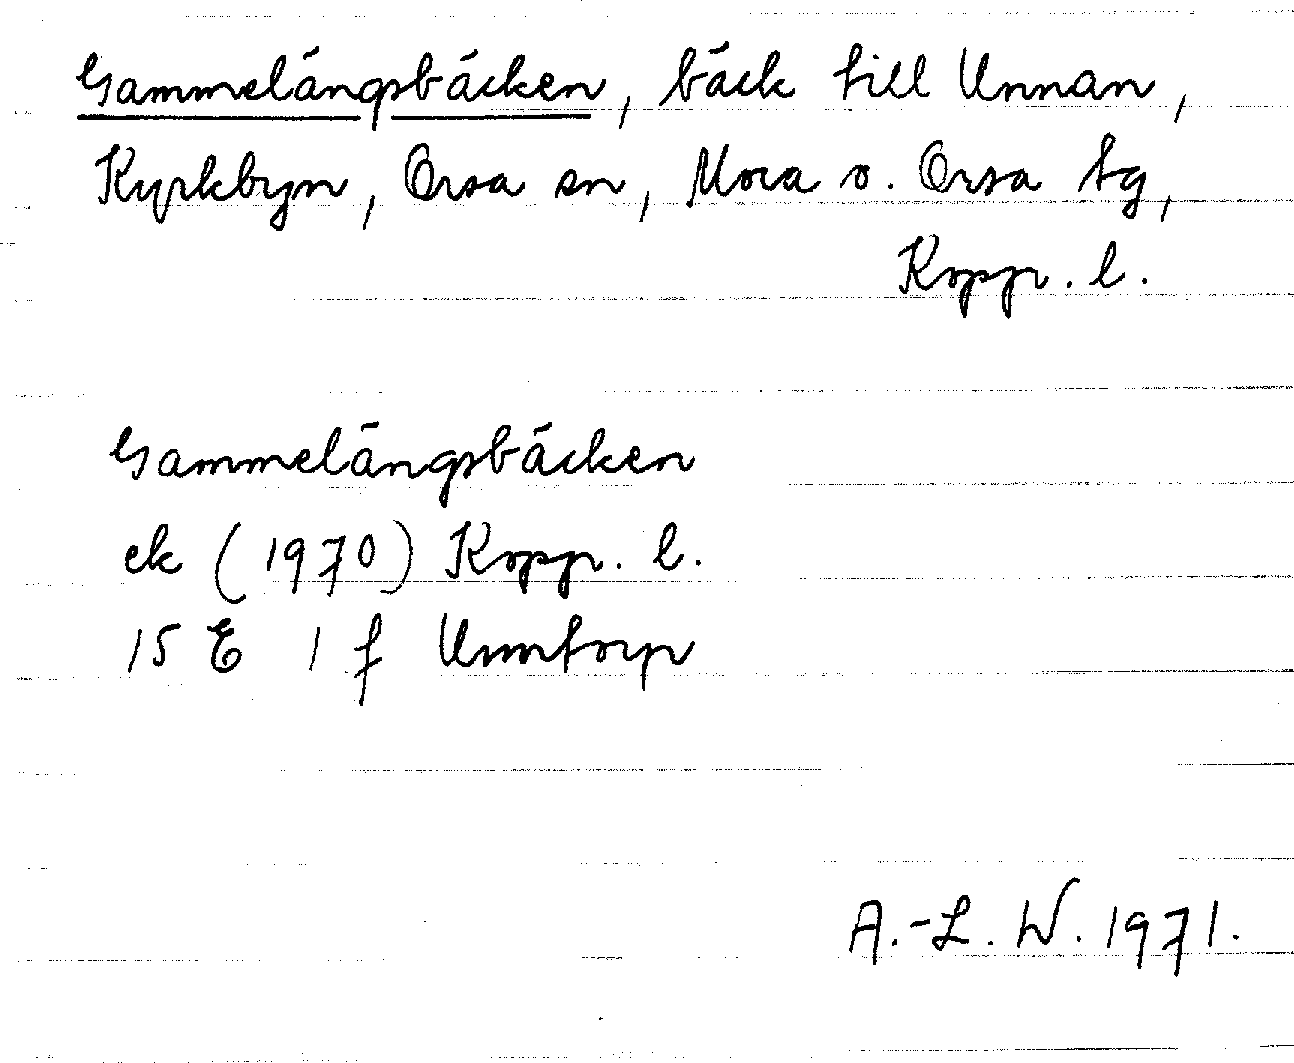 Gammelängsbäcken, bäck till Unnån,
Kyrkbyn, Orsa sn, Mora o. Orsa tg,
Kopp. l.
Gammelängsbäcken
ek (1970) Kopp. l.
15 E 1 f Unntorp
A.-L. W. 1971.